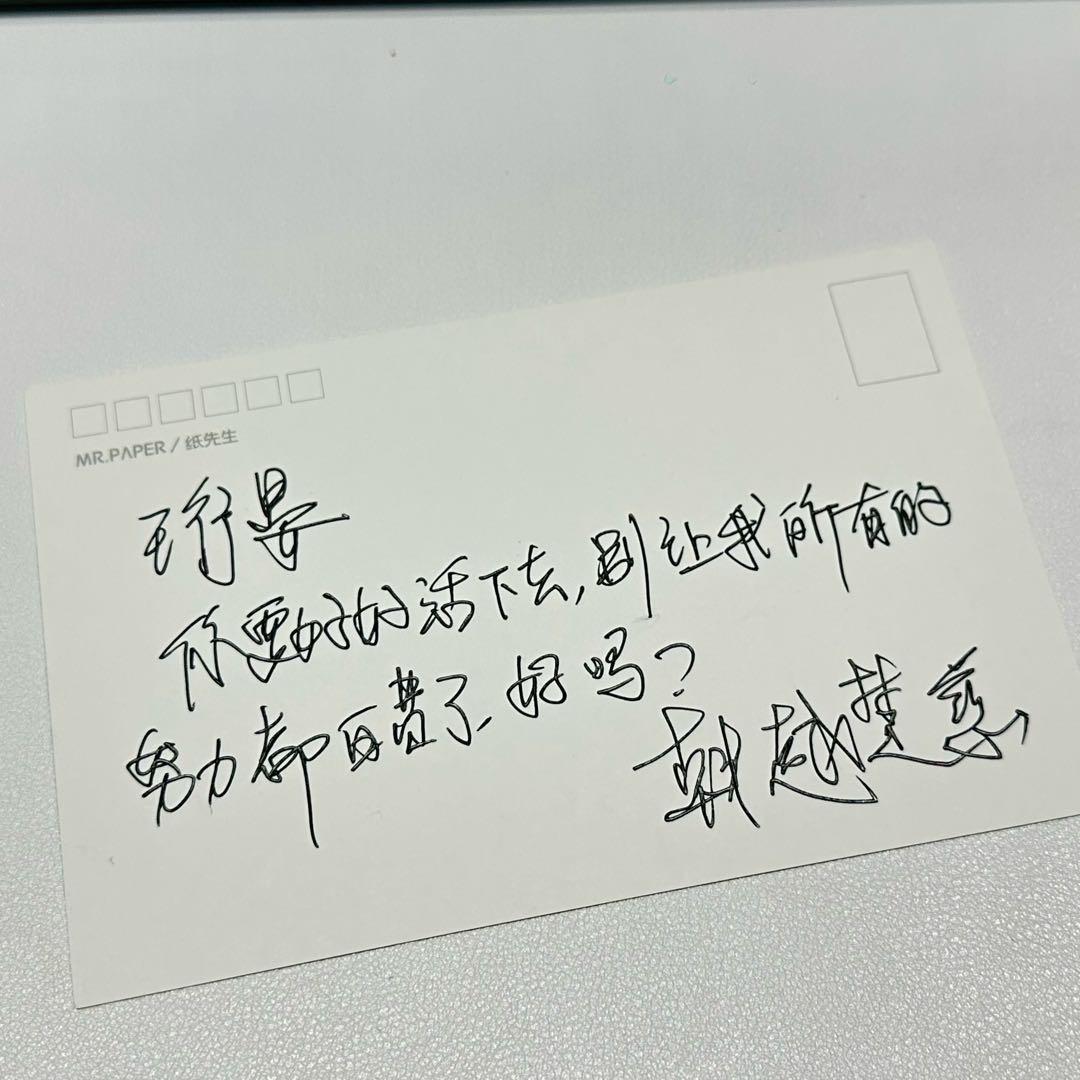 MR.PAPER / 纸先生
珩晏
你要好好活下去，别让我所有的
努力都白费了、好吗？
越楚慈